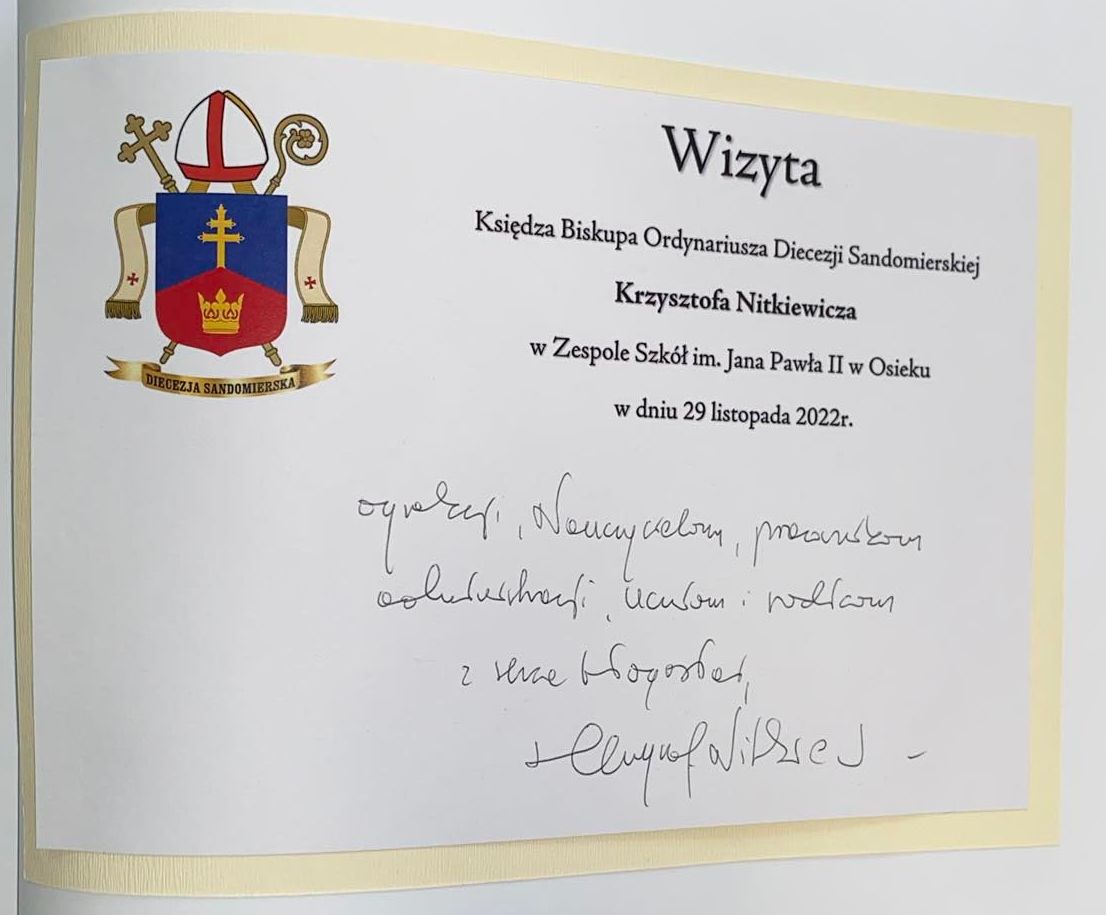 Wizyta
Księdza Biskupa Ordynariusza Diecezji Sandomierskiej
Krzysztofa Nitkiewicza
w Zespole Szkół im. Jana Pawła II w Osieku
w dniu 29 listopada 2022r.
DIECEZJA SANDOMIERSKA
Dyrekcji, Nauczycielom, pracownikom
administracji, uczniom i rodzicom
z serca błogosławię,
+ Krzysztof Nitkiewicz